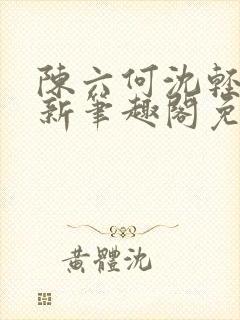 陳六何沈輕
新筆趣閣免
黃體沈